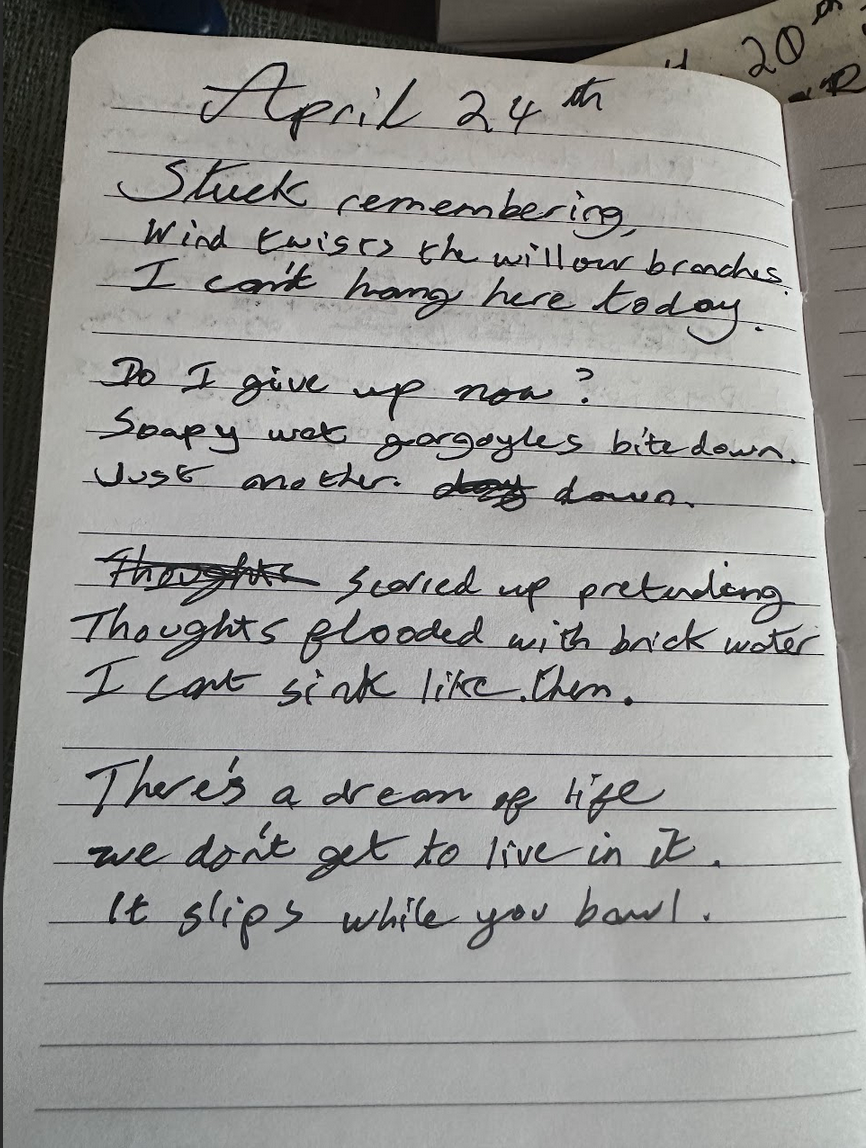 20th
April 24th
Stuck remembering,
Wind twists the willow branches.
I can't hang here today.
Do I give up now?
Soapy wet gargoyles bite down.
Just another. down.
up pretending
Thoughts flooded with brick water
I cant sink like .them.
There's a dream of life
we don't get to live in it.
It slips while you bawl.